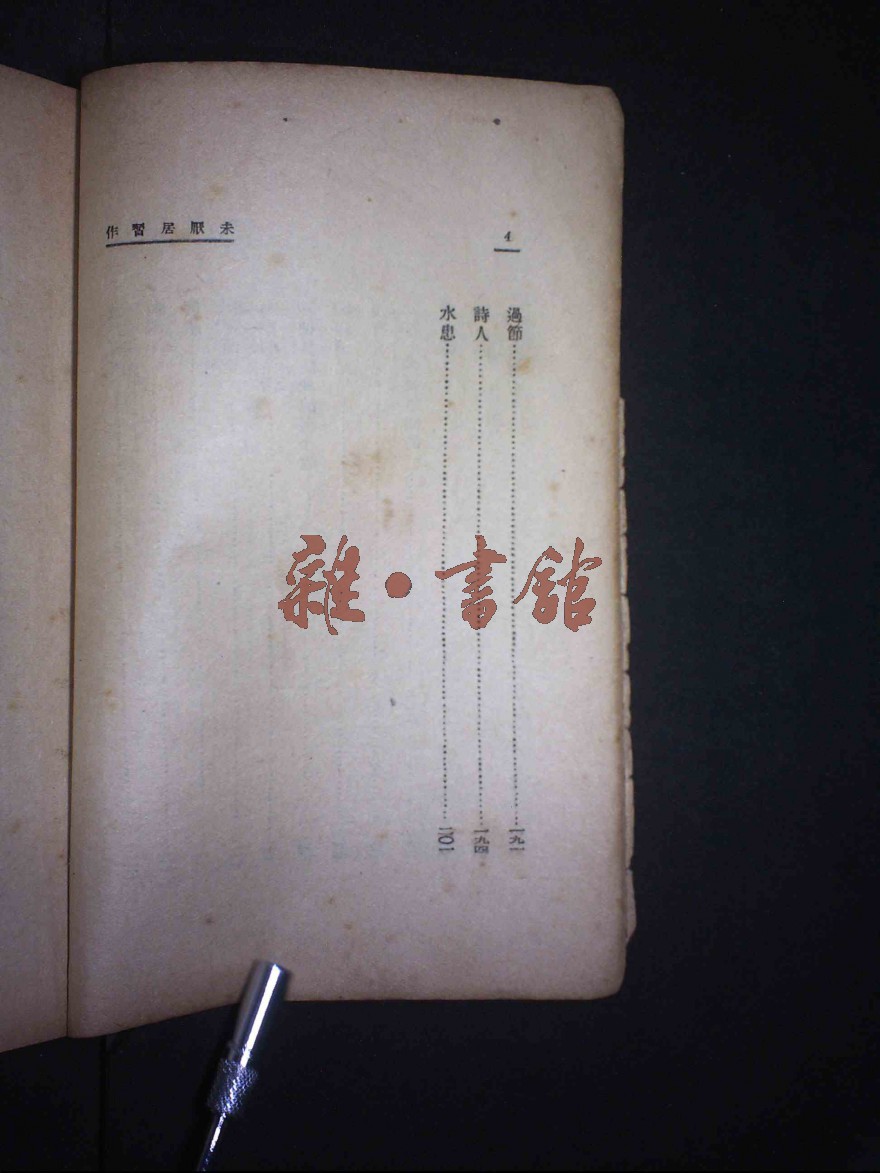 4
未厭居習作
過節……………………一九一
詩人……………………一九四
水患……………………二〇一
雜•書館